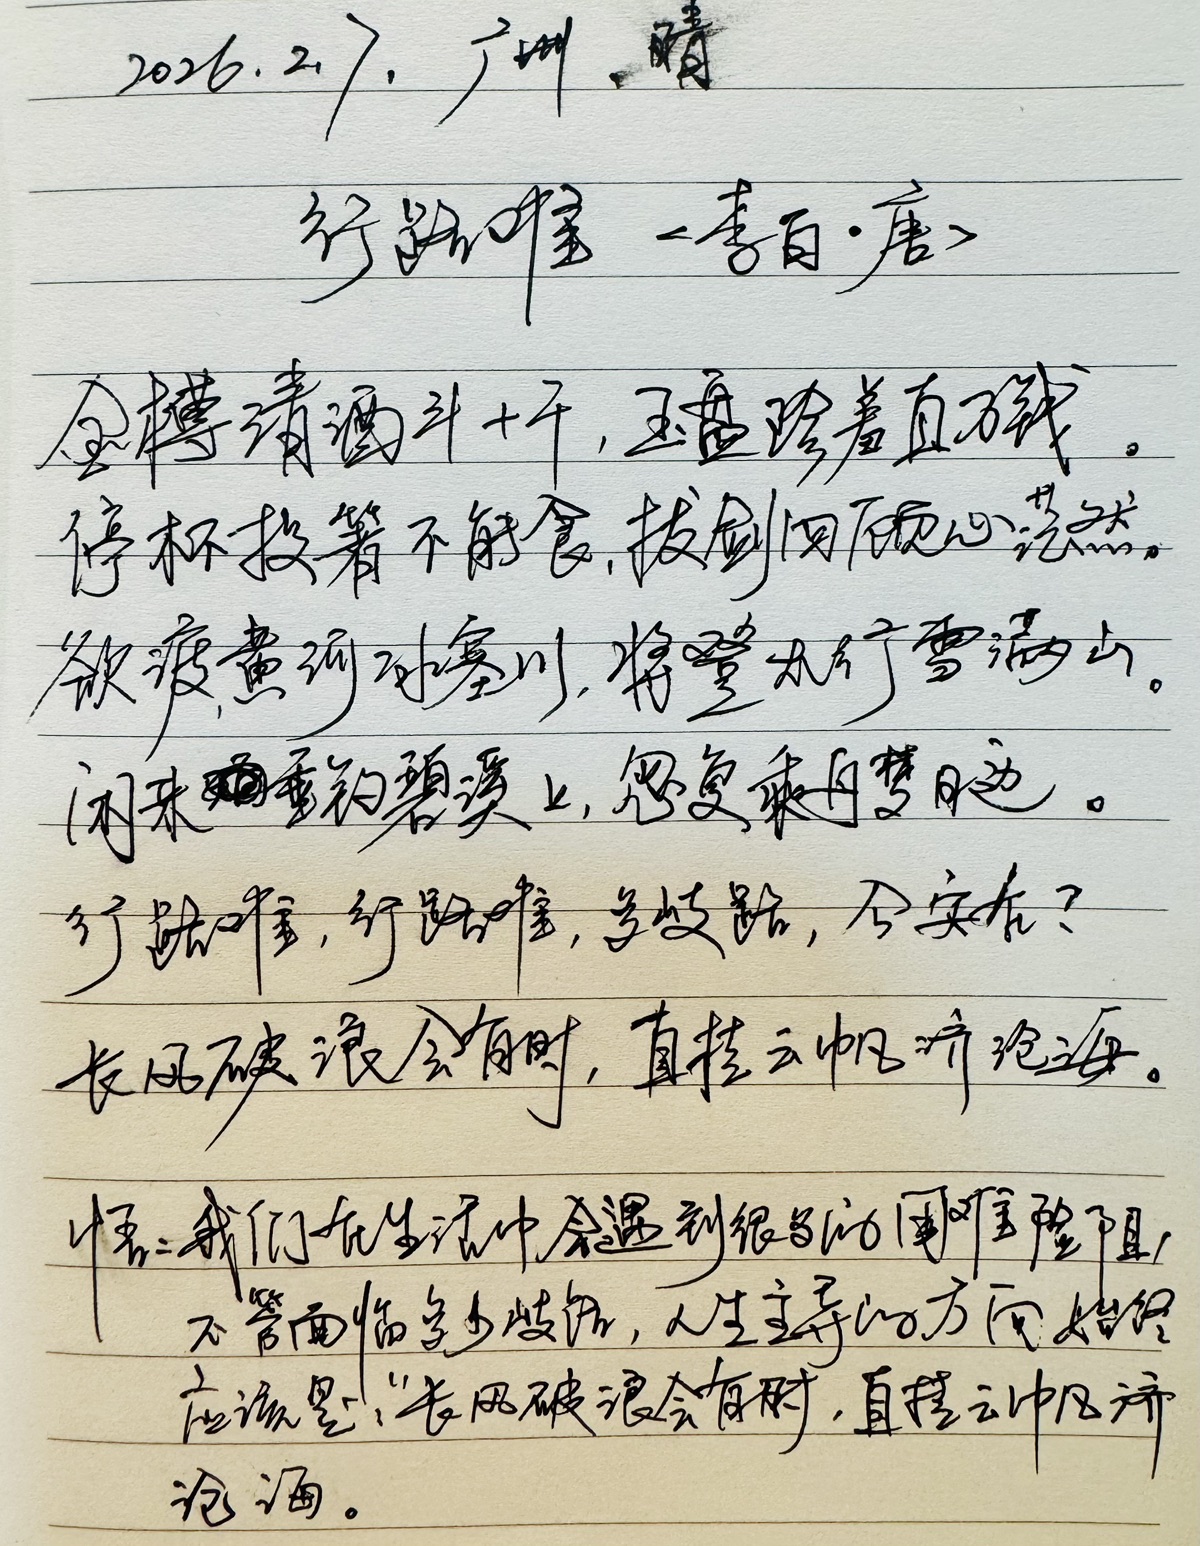 2026.2.7. 广州.晴
行路难 <李白·唐>
金樽清酒斗十千,玉盘珍羞直万钱。
停杯投箸不能食,拔剑四顾心茫然。
欲渡黄河冰塞川,将登太行雪满山。
闲来垂钓碧溪上,忽复乘舟梦日边。
行路难,行路难,多歧路,今安在?
长风破浪会有时,直挂云帆济沧海。
悟:我们在生活中会遇到很多的困难险阻,
不管面临多少歧路,人生主导的方向始终
应该是:“长风破浪会有时,直挂云帆济
沧海。